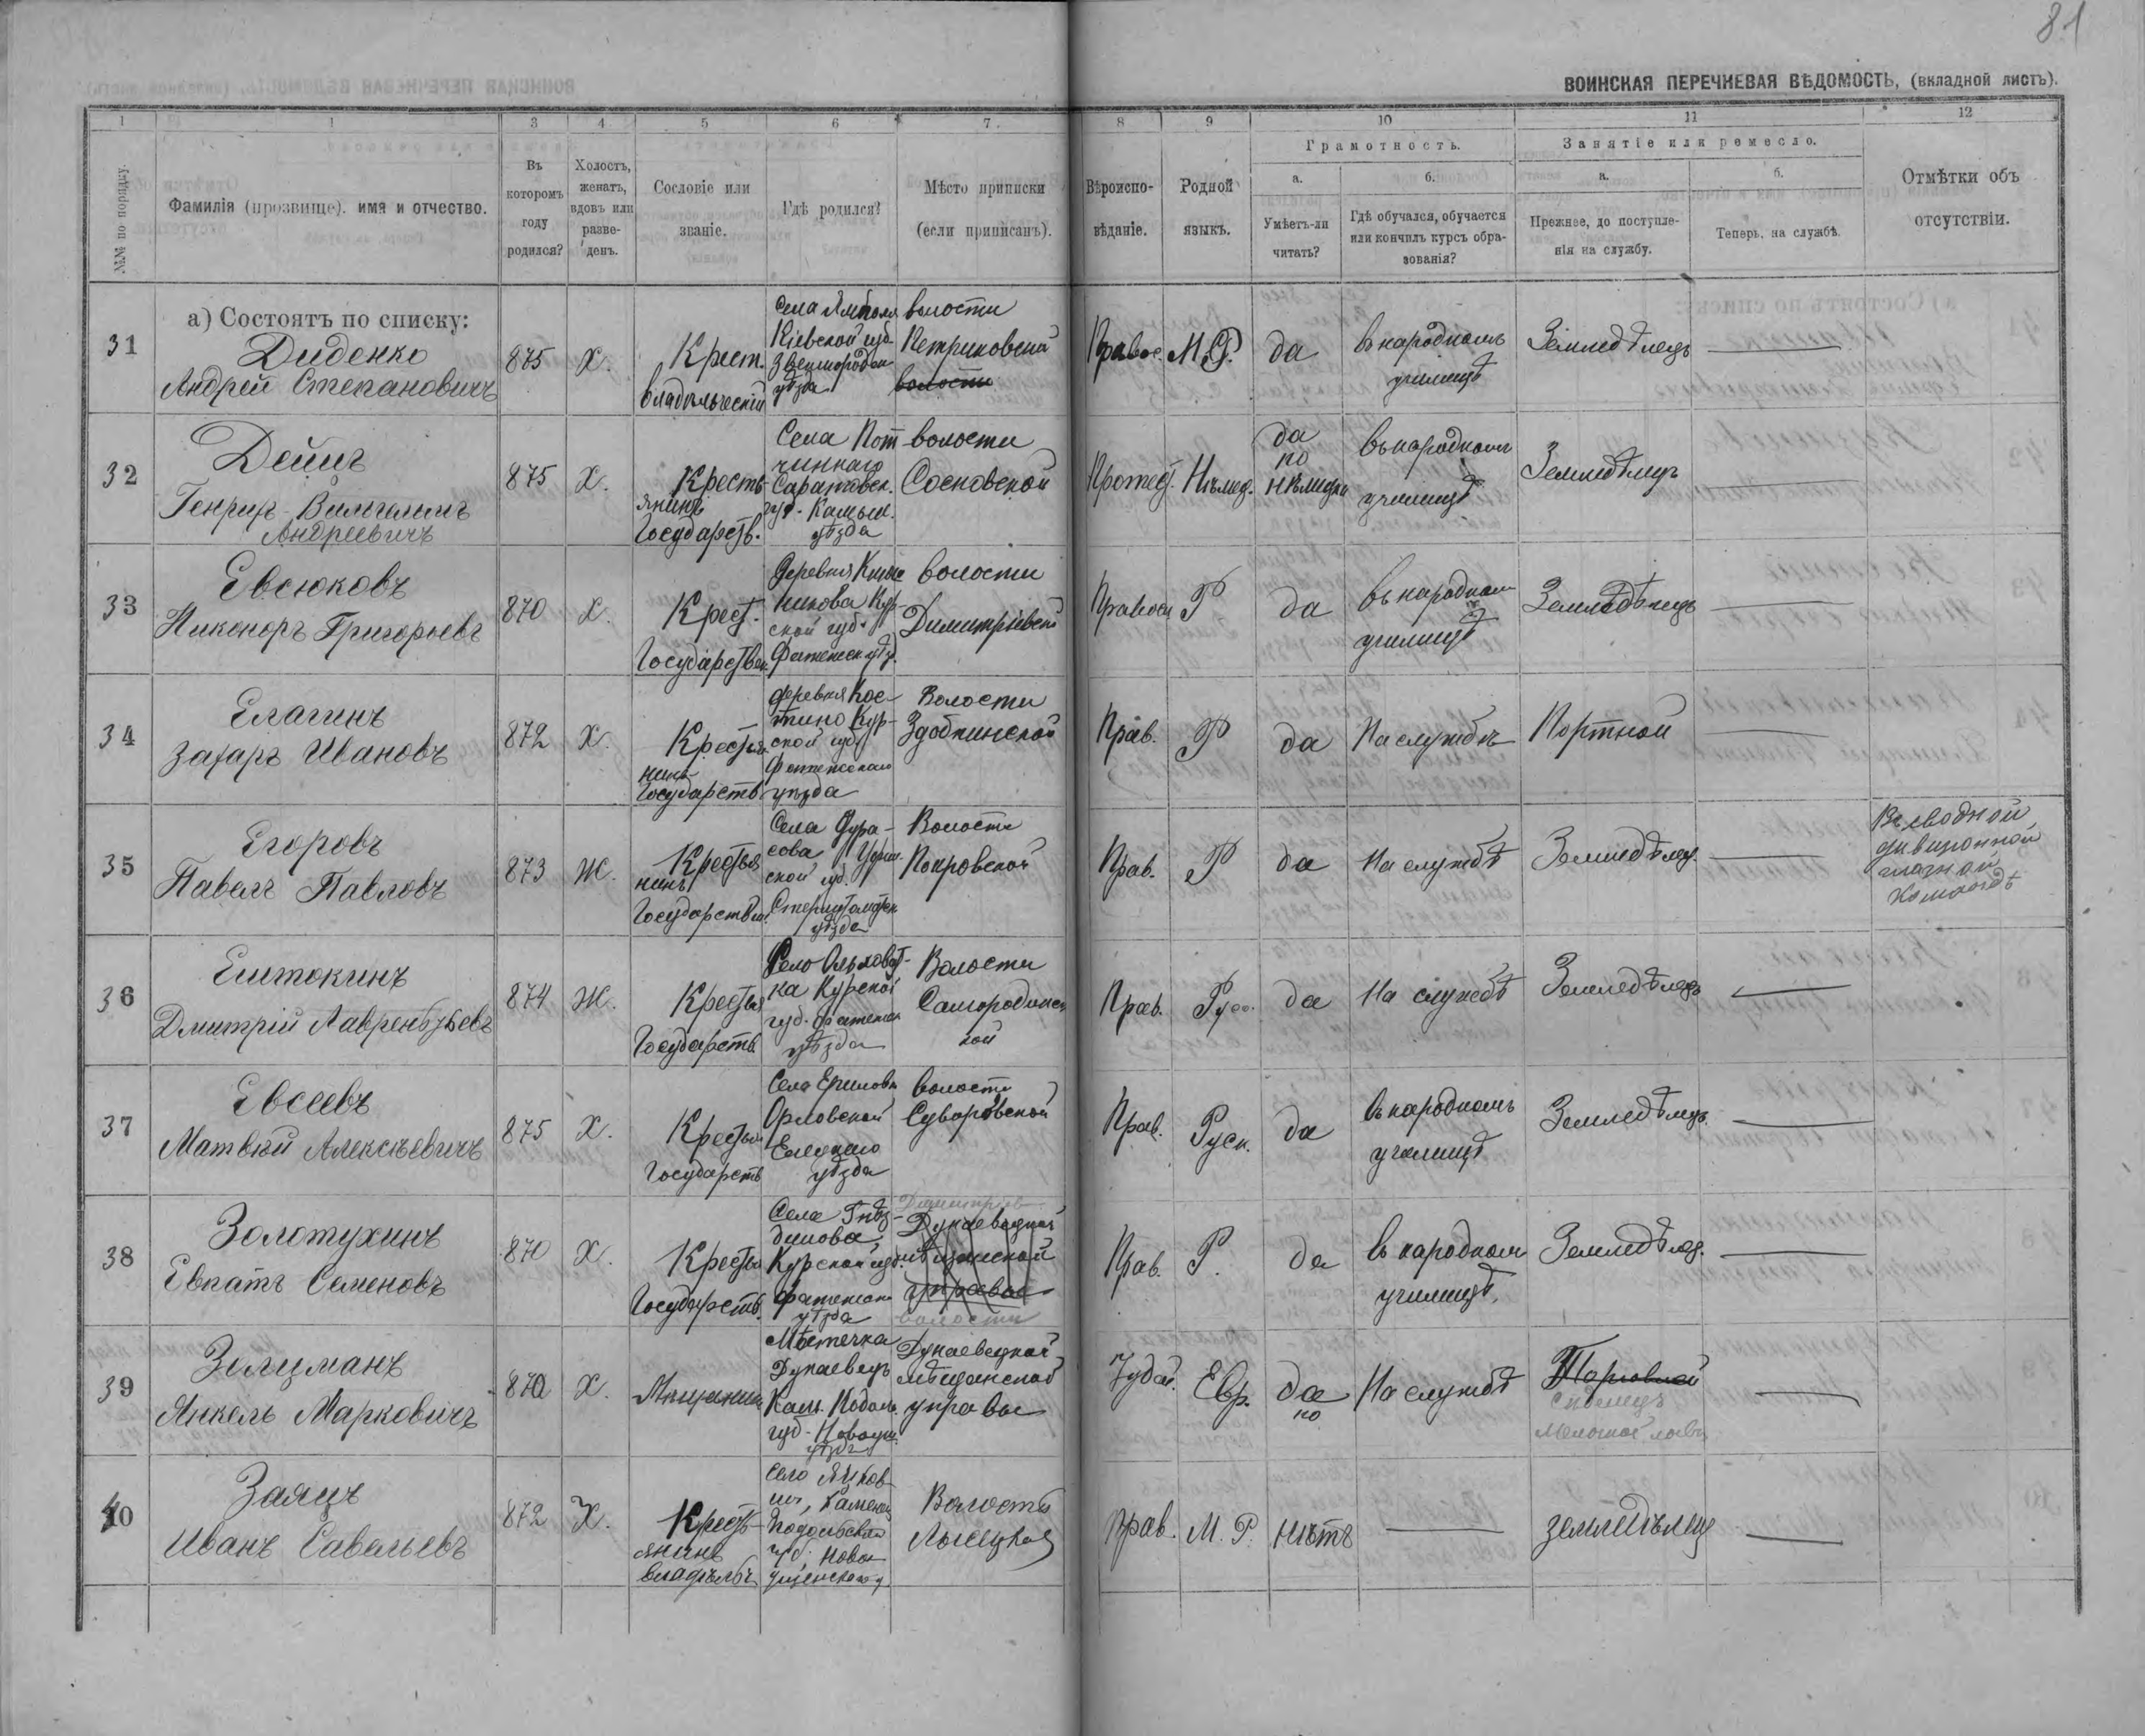 81
ВОИНСКАЯ ПЕРЕЧНЕВАЯ ВѢДОМОСТЬ, (вкладной листъ).
1 1 3 4 5 6 7 8 9 10 11 12
№№ по порядку.
Фамилія (прозвище). имя и отчество.
Въ которомъ году родился?
Холостъ, женатъ, вдовъ или разве-денъ.
Сословіе или званіе.
Гдѣ родился?
Мѣсто приписки (если приписанъ).
Вѣроиспо-вѣданіе.
Родной языкъ.
Грамотность.
а. Умѣетъ-ли читать?
б. Гдѣ обучался, обучается или кончилъ курсъ обра-зованія?
Занятіе или ремесло.
а. Прежнее, до поступле-нія на службу.
б. Теперь, на службѣ.
Отмѣтки объ отсутствіи.
а) Состоятъ по списку:
31
Диденко
Андрей Степановичъ
875 Х.
Крест.
владѣльческій
Села
Кіевской губ.
уѣзда
волости
волости
Правос. М.Р. да
въ народномъ
училищѣ
Земледѣлецъ
32
Дейнъ
Генрихъ-Вильгельмъ
Андреевичъ
875 Х.
Кресть-
янинъ
Государств.
Села
Саратовск.
губ. Камыш.
уѣзда
волости
Сосновской
Протест. Нѣмец.
да
по
нѣмецки
въ народномъ
училищѣ
Земледѣлецъ
33
Евсюковъ
Никоноръ Григорьевъ
870 Х.
Крест.
Государствен.
Деревня
Кур-
ской губ.
Фатежск. уѣз.
волости
Димитріевской
Правосл. Р да
въ народном
училищѣ
Земледѣлецъ
34
Елагинъ
Захаръ Ивановъ
872 Х.
Крестья
нинъ
Государств
деревня Кос-
тино Кур-
ской губ.
Фатежскаго
уѣзда
Волости
Прав. Р да
На службѣ
Портной
35
Егоровъ
Павелъ Павловъ
873 Ж.
Крестья
нинъ
Государствен.
Села Дура-
сова Уфим.
ской губ.
уѣзда
Волости
Покровской
Прав. Р да
На службѣ
Земледѣлец.
Въ сводной
дивизионной
глазной
командѣ
36
Дмитрій Лаврентьевъ
874 Ж.
Крестья
Государств.
Село Ольховат-
ка Курской
губ. Фатежск
уѣзда
Волости
Самородинск
кой
Прав. Рус. да
На службѣ
Земледѣлецъ
37
Евсеевъ
Матвѣй Алексѣевичъ
875 Х.
Крестья
Государств
Села
Орловской
Елецкаго
уѣзда
волости
Суворовской
Прав. Руск. да
въ народномъ
училищѣ
Земледѣлецъ.
38
Золотухинъ
Евпатъ Семеновъ
870 Х.
Крестья
Государств.
Села Гнѣз-
дилова
Курской губ.
Фатежск
уѣзда
Димитріев
Дунаевецкой
мѣщанской
управы
волости
Прав. Р. да
въ народном
училищѣ.
Земледѣлец.
39
Зелцманъ
Янкель Марковичъ
870 Х.
Мѣщанин
Мѣстечка
Дунаевецъ
Кам. Подол.
губ. Новоуш.
уѣзда
Дунаевецкой
мѣщанской
управы
Іудей. Евр. да
по
На службѣ
Торговлей
мелочной лавк
40
Заяцъ
Иванъ Савельевъ
872 Х.
Крест-
янинъ
владѣльч.
Село
Каменец
Подольская
губ. Ново
ушицкаго у.
Волости
Прав. М. Р. нѣтъ
земледѣлец